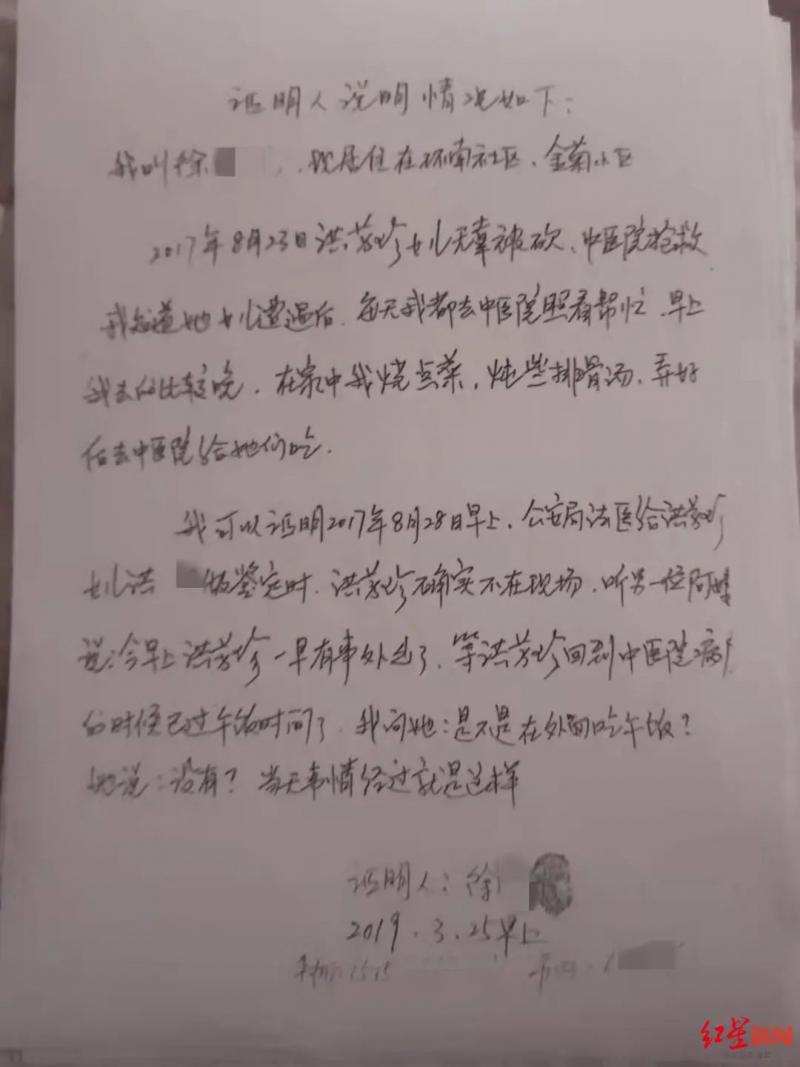 证明人说明情况如下：
我叫徐，现居住在环南社区，金菊小区
2017年8月23日洪芳珍女儿无辜被砍、中医院抢救
我知道她女儿遭遇后，每天我都去中医院照看帮忙，早上
我去的比较晚，在家中我烧点菜，炖些排骨汤，弄好
后去中医院给她们吃.
我可以证明2017年8月28日早上，公安局法医给洪芳珍
女儿洪 做鉴定时，洪芳珍确实不在现场，听另一位阿姨
说：今早上洪芳珍一早有事外出了，等洪芳珍回到中医院病
的时候已过午饭时间了，我问她：是不是在外面吃午饭？
她说：没有？当天事情经过就是这样
证明人：徐
2019.3.25早上
红星新闻